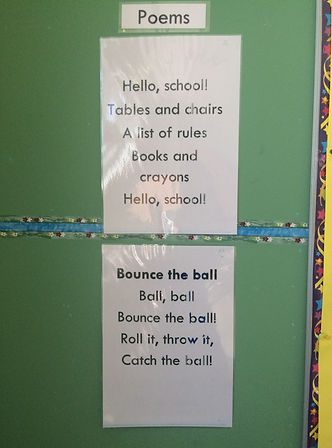 Poems
Hello, school!
Tables and chairs
A list of rules
Books and
crayons
Hello, school!
Bounce the ball
Ball, ball
Bounce the ball!
Roll it, throw it,
Catch the ball!